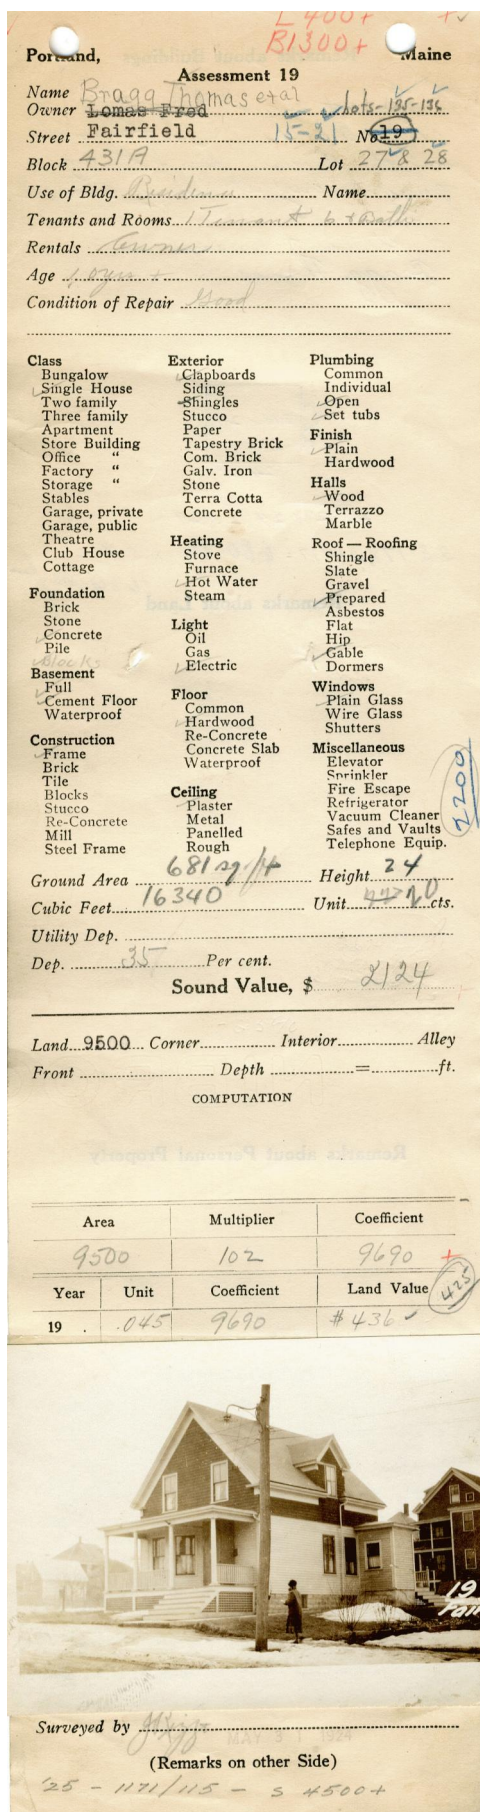 L 400+ +
B1300+
Portland, Maine
Assessment 19
Name Bragg Thomas et al
Owner Lomas Fred Lots-135-136
Street Fairfield 15-21 No 19
Block 431A Lot 27 & 28
Use of Bldg. Residence Name
Tenants and Rooms 1 Tenant 6 + Bath
Rentals Owner
Age 10 yrs +
Condition of Repair Good
Class
Bungalow
Single House
Two family
Three family
Apartment
Store Building
Office "
Factory "
Storage "
Stables
Garage, private
Garage, public
Theatre
Club House
Cottage
Foundation
Brick
Stone
Concrete
Pile
Blocks
Basement
Full
Cement Floor
Waterproof
Construction
Frame
Brick
Tile
Blocks
Stucco
Re-Concrete
Mill
Steel Frame
Exterior
Clapboards
Siding
Shingles
Stucco
Paper
Tapestry Brick
Com. Brick
Galv. Iron
Stone
Terra Cotta
Concrete
Heating
Stove
Furnace
Hot Water
Steam
Light
Oil
Gas
Electric
Floor
Common
Hardwood
Re-Concrete
Concrete Slab
Waterproof
Ceiling
Plaster
Metal
Panelled
Rough
Plumbing
Common
Individual
Open
Set tubs
Finish
Plain
Hardwood
Halls
Wood
Terrazzo
Marble
Roof — Roofing
Shingle
Slate
Gravel
Prepared
Asbestos
Flat
Hip
Gable
Dormers
Windows
Plain Glass
Wire Glass
Shutters
Miscellaneous
Elevator
Sprinkler
Fire Escape
Refrigerator
Vacuum Cleaner
Safes and Vaults
Telephone Equip.
2200
Ground Area 681 sq/ft Height 24
Cubic Feet 16340 Unit 20 cts.
Utility Dep.
Dep. 35 Per cent.
Sound Value, $ 2124
Land 9500 Corner Interior Alley
Front Depth = ft.
COMPUTATION
Area Multiplier Coefficient
9500 102 9690 +
Year Unit Coefficient Land Value 425
19 . .045 9690 $436
19
Surveyed by
MAY 31 1924
(Remarks on other Side)
'25 - 1171/115 - S 4500+